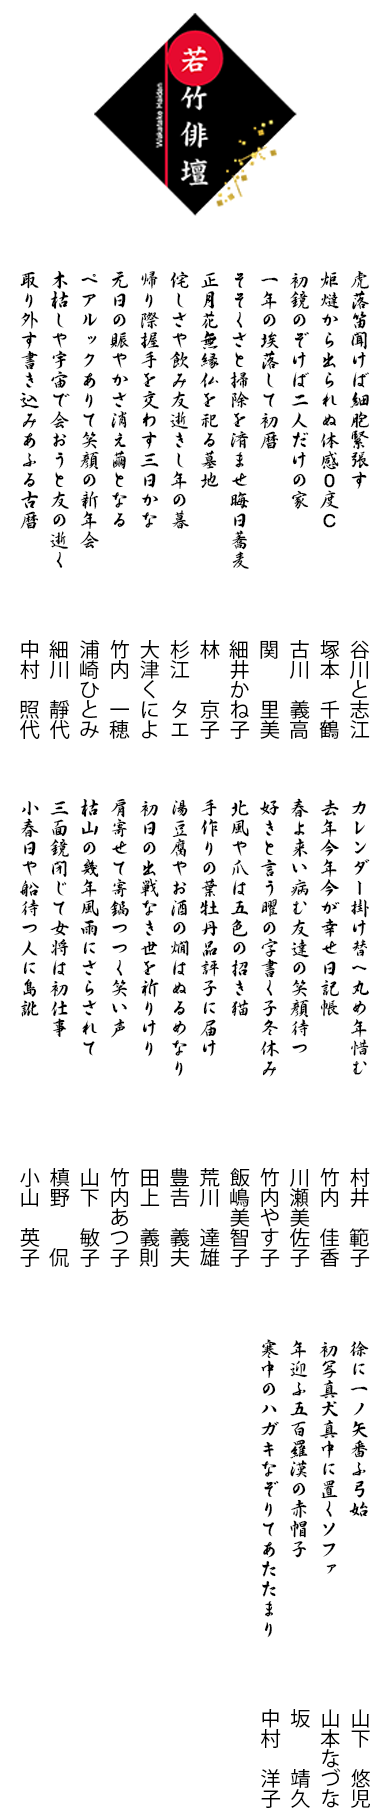 若竹俳壇
Wakatake Haidan
虎落笛聞けば細胞緊張す
炬燵から出られぬ体感０度Ｃ
初鏡のぞけば二人だけの家
一年の埃落して初暦
そそくさと掃除を済ませ晦日蕎麦
正月花無縁仏を祀る墓地
侘しさや飲み友逝きし年の暮
帰り際握手を交わす三日かな
元日の賑やかさ消え繭となる
ペアルックありて笑顔の新年会
木枯しや宇宙で会おうと友の逝く
取り外す書き込みあふる古暦
谷川と志江
塚本 千鶴
古川 義高
関 里美
細井かね子
林 京子
杉江 タエ
大津くによ
竹内 一穂
浦崎ひとみ
細川 靜代
中村 照代
カレンダー掛け替へ丸め年惜む
去年今年今が幸せ日記帳
春よ来い病む友達の笑顔待つ
好きと言う曜の字書く子冬休み
北風や爪は五色の招き猫
手作りの葉牡丹品評子に届け
湯豆腐やお酒の燗はぬるめなり
初日の出戦なき世を祈りけり
肩寄せて寄鍋つつく笑い声
枯山の幾年風雨にさらされて
三面鏡閉じて女将は初仕事
小春日や船待つ人に島訛
村井 範子
竹内 佳香
川瀬美佐子
竹内やす子
飯嶋美智子
荒川 達雄
豊𠮷 義夫
田上 義則
竹内あつ子
山下 敏子
槙野 侃
小山 英子
徐に一ノ矢番ふ弓始
初写真犬真中に置くソファ
年迎ふ五百羅漢の赤帽子
寒中のハガキなぞりてあたたまり
山下 悠児
山本なづな
坂 靖久
中村 洋子